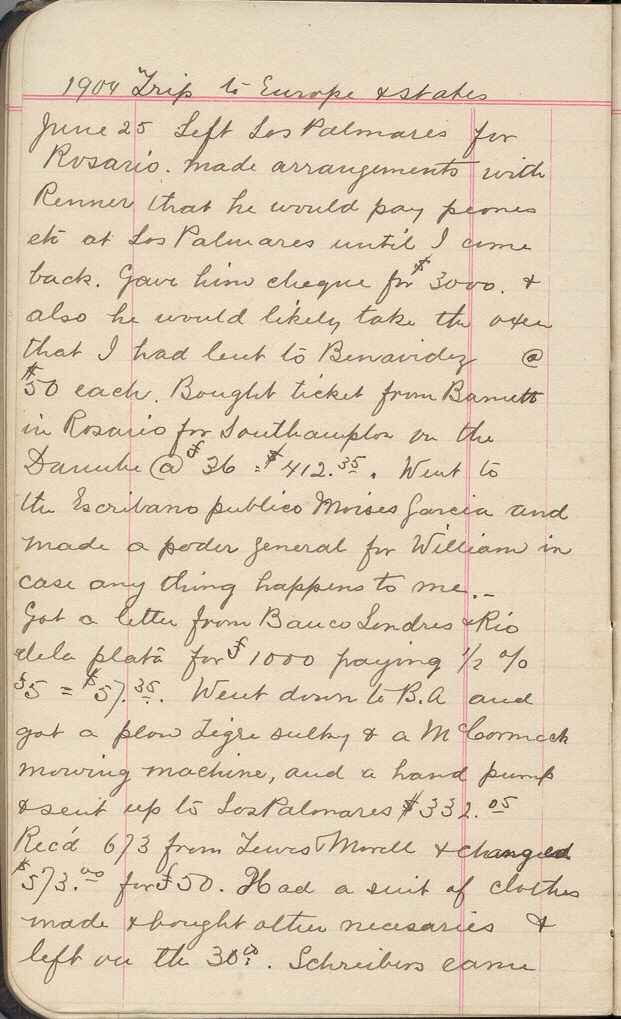 1904 Trip to Europe & states
June 25 Left Los Palmares for
Rosario. made arrangements with
Renner that he would pay peones
etc at Los Palmares until I come
back. Gave him cheque for $3000. &
also he would likely take the oxen
that I had lent to Benavidez @
$50 each. Bought ticket from Barnett
in Rosario for Southampton on the
Danube @ £36 = $412.35. Went to
the Escribano publico Moises Garcia and
made a poder general for William in
case any thing happens to me._
Got a letter from Banco Londres & Rio
dela plata for £1000 paying 1/2 %
£5 = $57.35. Went down to B.A and
got a plow Tigre sulky & a McCormack
mowing machine, and a hand pump
& sent up to Los Palmares $332.05
Recd 673 from Lewis Morell & changed
$573.00 for £50. Had a suit of clothes
made & bought other necesaries &
left on the 30th. Schreibers came